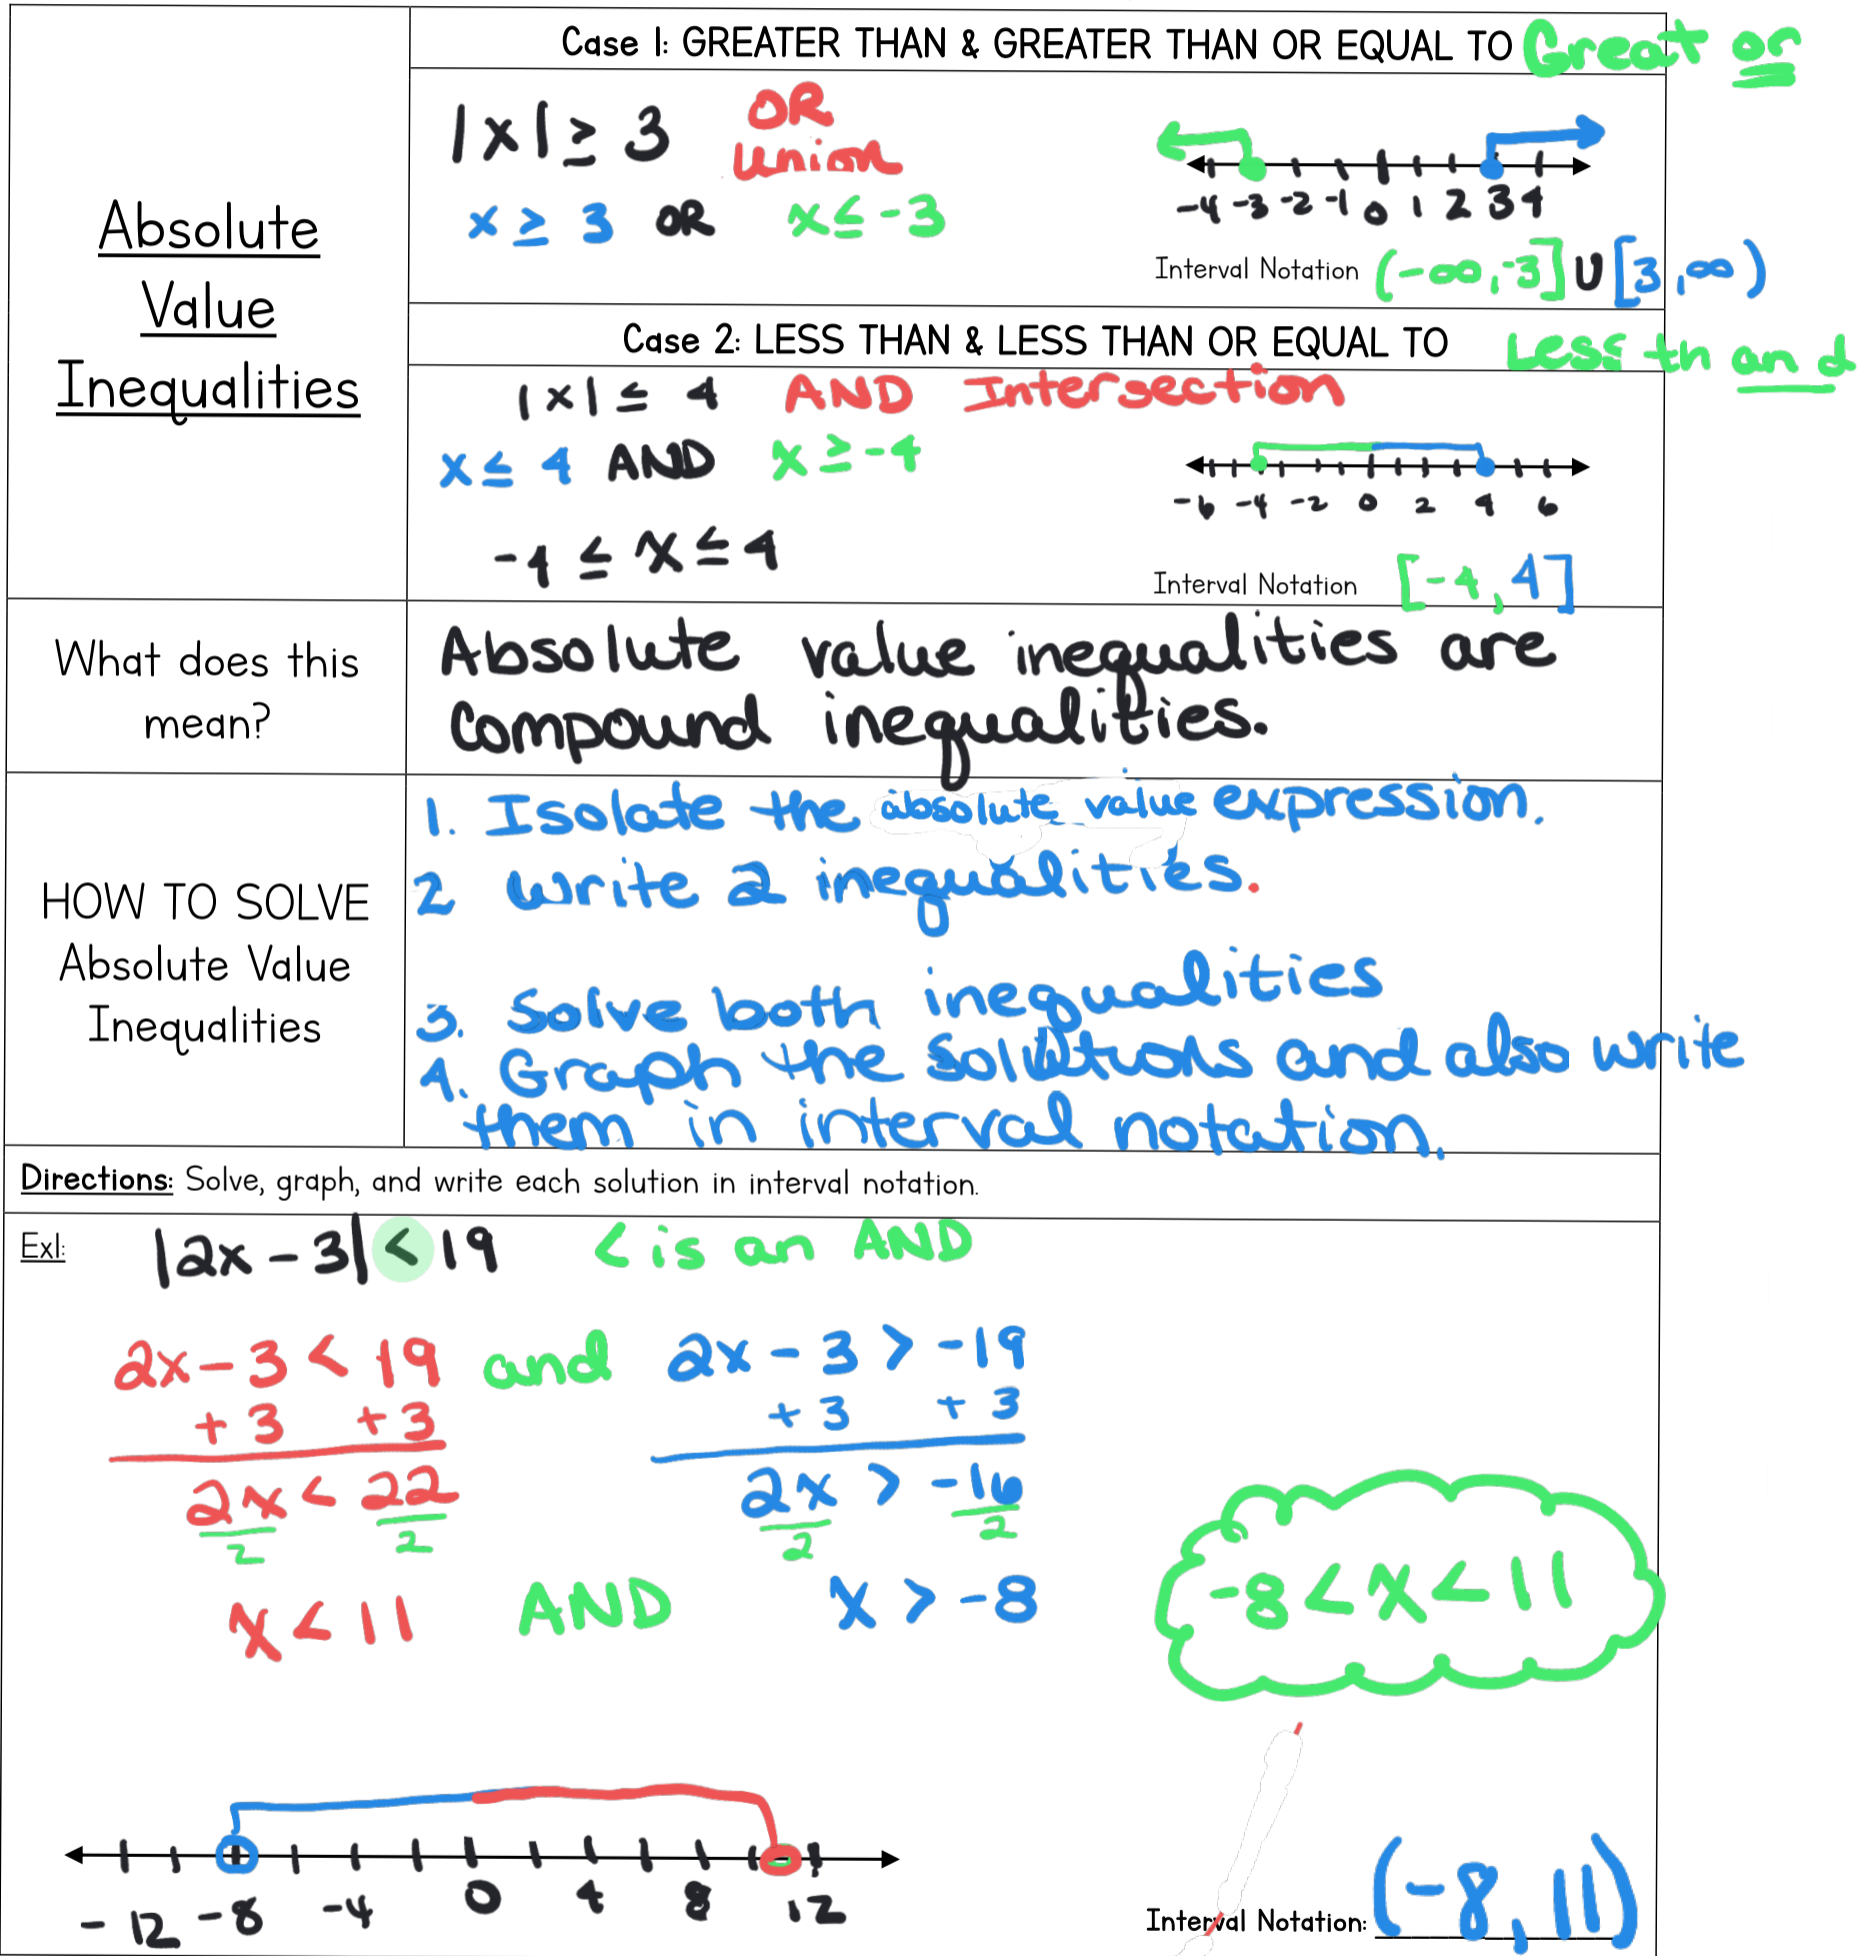 Absolute
Value
Inequalities
Case 1: GREATER THAN & GREATER THAN OR EQUAL TO Great or
|x| ≥ 3 OR
Union
x ≥ 3 OR x ≤ -3
-4 -3 -2 -1 0 1 2 3 4
Interval Notation (-∞,-3] U [3,∞)
Case 2: LESS THAN & LESS THAN OR EQUAL TO Less th and
|x| ≤ 4 AND Intersection
x ≤ 4 AND x ≥ -4
-6 -4 -2 0 2 4 6
-4 ≤ x ≤ 4
Interval Notation [-4, 4]
What does this
mean?
Absolute value inequalities are
compound inequalities.
HOW TO SOLVE
Absolute Value
Inequalities
1. Isolate the absolute value expression.
2 Write 2 inequalities.
3. Solve both inequalities
4. Graph the solutions and also write
them in interval notation.
Directions: Solve, graph, and write each solution in interval notation.
Ex1: |2x - 3| < 19 < is an AND
2x - 3 < 19 and 2x - 3 > -19
+ 3 + 3 + 3 + 3
2x < 22 2x > -16
2 2 2 2
x < 11 AND x > -8
-8 < x < 11
-12 -8 -4 0 4 8 12
Interval Notation: (-8, 11)